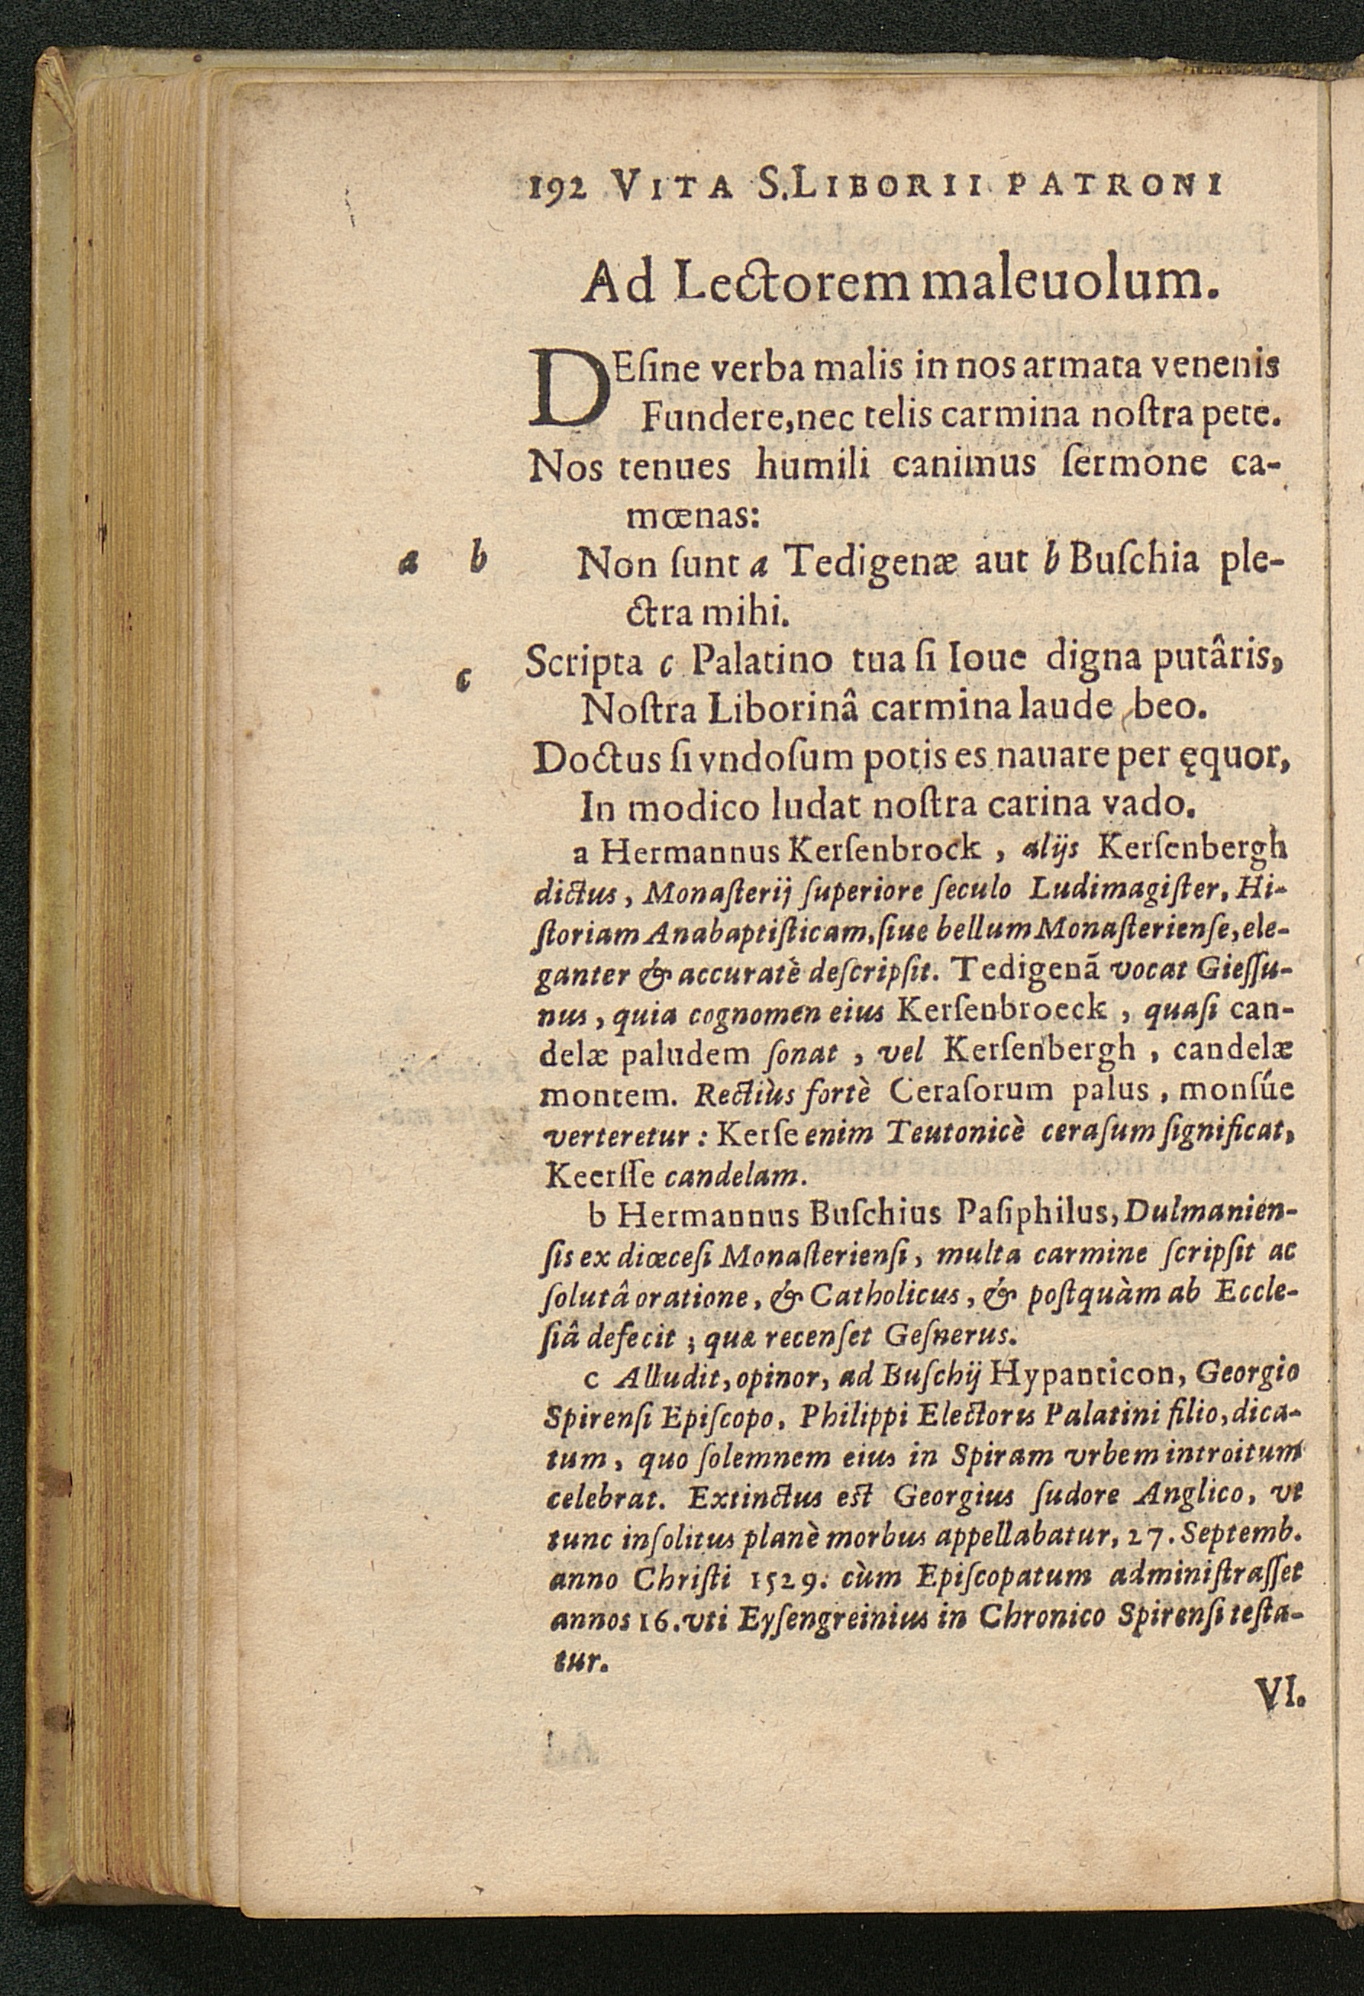 192 VITA S. LIBORII PATRONI
Ad Lectorem maleuolum.
DEſine verba malis in nos armata venenis
Fundere, nec telis carmina noſtra pete.
Nos tenues humili canimus ſermone ca-
mœnas:
a b Non ſunt a Tedigenæ aut b Buſchia ple-
ctra mihi.
c Scripta c Palatino tua ſi Ioue digna putâris,
Noſtra Liborinâ carmina laude beo.
Doctus ſi vndoſum potis es nauare per ęquor,
In modico ludat noſtra carina vado.
a Hermannus Kerſenbrock, alijs Kerſenbergh
dictus, Monaſterij ſuperiore ſeculo Ludimagiſter, Hi-
ſtoriam Anabaptiſticam, ſiue bellum Monaſterienſe, ele-
ganter & accuratè deſcripſit. Tedigenã vocat Gieſſu-
nus, quia cognomen eius Kerſenbroeck, quaſi can-
delæ paludem ſonat, vel Kerſenbergh, candelæ
montem. Rectiùs fortè Ceraſorum palus, monsúe
verteretur: Kerſe enim Teutonicè ceraſum ſignificat,
Keerſſe candelam.
b Hermannus Buſchius Paſiphilus, Dulmanien-
ſis ex diœceſi Monaſterienſi, multa carmine ſcripſit ac
ſolutâ oratione, & Catholicus, & poſtquàm ab Eccle-
ſiâ defecit; quæ recenſet Geſnerus.
c Alludit, opinor, ad Buſchij Hypanticon, Georgio
Spirenſi Epiſcopo, Philippi Electoris Palatini filio, dica-
tum, quo ſolemnem eius in Spiram vrbem introitum
celebrat. Extinctus eſt Georgius ſudore Anglico, vt
tunc inſolitus planè morbus appellabatur, 27. Septemb.
anno Chriſti 1529. cùm Epiſcopatum adminiſtraſſet
annos 16. vti Eyſengreinius in Chronico Spirenſi teſta-
tur.
VI.